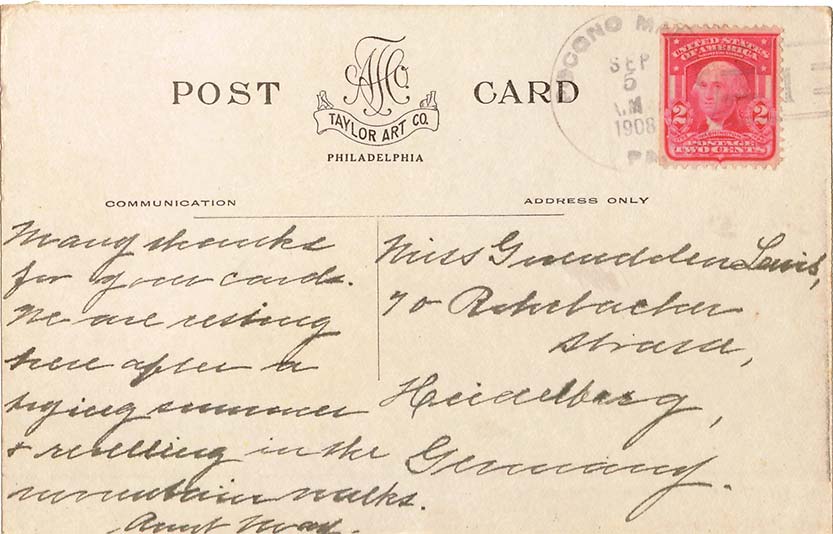 POCONO
SEP
5
AM
1908
PA
UNITED STATES
OF AMERICA
2 2
POSTAGE
TWO CENTS
POST CARD
TAYLOR ART CO.
PHILADELPHIA
COMMUNICATION
ADDRESS ONLY
Many thanks
for your cards.
We are resting
here after a
trying summer
& revelling in the
mountain walks.
Aunt
Miss Gwendolen Lewis,
70 Rohrbacher
Strasse,
Heidelberg,
Germany.